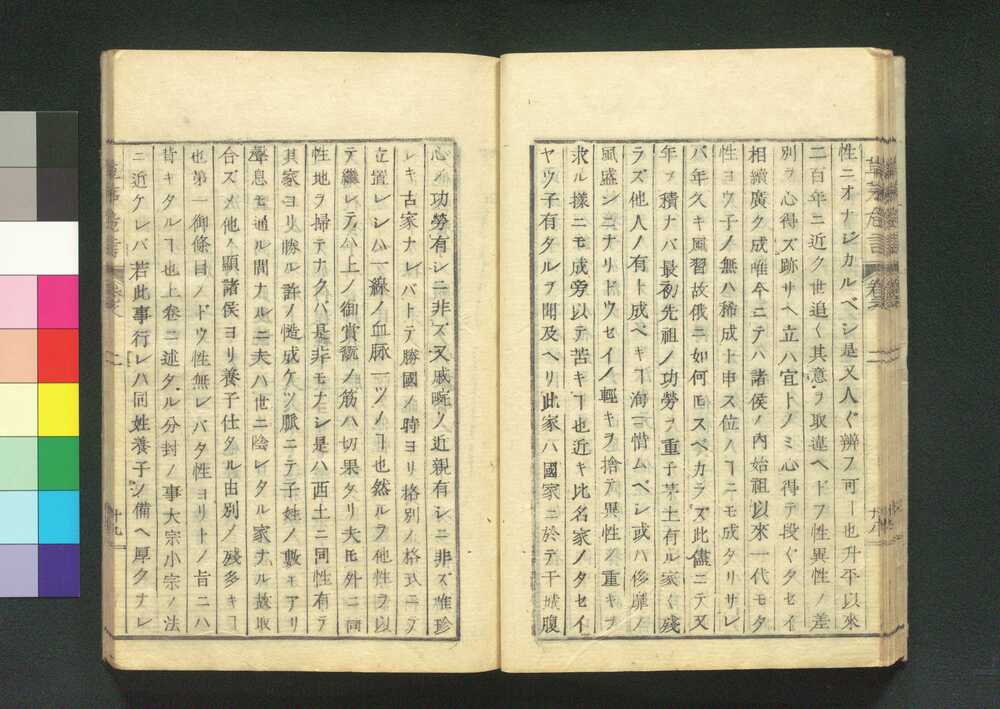 性ニオナジカルベシ是又人〻辨フ可キヿ也升平以來
二百年ニ近ク世追〻其意ヲ取違ヘドフ性異性ノ差
別ヲ心得ズ跡サヘ立ハ宜トノミ心得テ段〻タセイ
相續廣ク成唯今ニテハ諸侯ノ内始祖以來一代モタ
性ヨウ子ノ無ハ稀成ト申ス位ノヿニモ成タリサレ
バ年久キ風習故俄ニ如何モスベカラズ此儘ニテ又
年ヲ積ナバ最初先祖ノ功勞ヲ重子茅土有ル家〻殘
ラズ他人ノ有ト成ベキヿ洵ニ惜ムベシ或ハ侈靡ノ
風盛ンニナリドウセイノ輕キヲ捨テ異性ノ重キヲ
求ル樣ニモ成旁以テ苦キヿ也近キ比名家ノタセイ
ヤウ子有タルヲ聞及ヘリ此家ハ國家ニ於テ干城腹
心ノ功勞有シニ非ズ又戚畹ノ近親有シニ非ズ唯珍
レキ古家ナレバトテ勝國ノ時ヨリ格別ノ格式ニテ
立置レシハ一線ノ血脉一ツノヿ也然ルヲ他性ヲ以
テ繼レテハ上ノ御賞翫ノ筋ハ切果タリ夫モ外ニ同
性地ヲ掃テナクバ是非モナシ是ハ西土ニ同性有テ
其家ヨリ勝ル許ノ造成ケツ脈ニテ子姓ノ數モアリ
聲息モ通ル間ナルニ夫ハ世ニ陰レタル家ナル故取
合ズメ他ノ顯諸侯ヨリ養子仕タル由別ノ殘多キヿ
也第一御條目ノドウ性無レバタ性ヨリトノ旨ニハ
背キタルヿ也上卷ニ述タル分封ノ事大宗小宗ノ法
ニ近ケレバ若此事行レハ同姓養子ノ備ヘ厚クナレ
草茅危言
卷之
二
十九